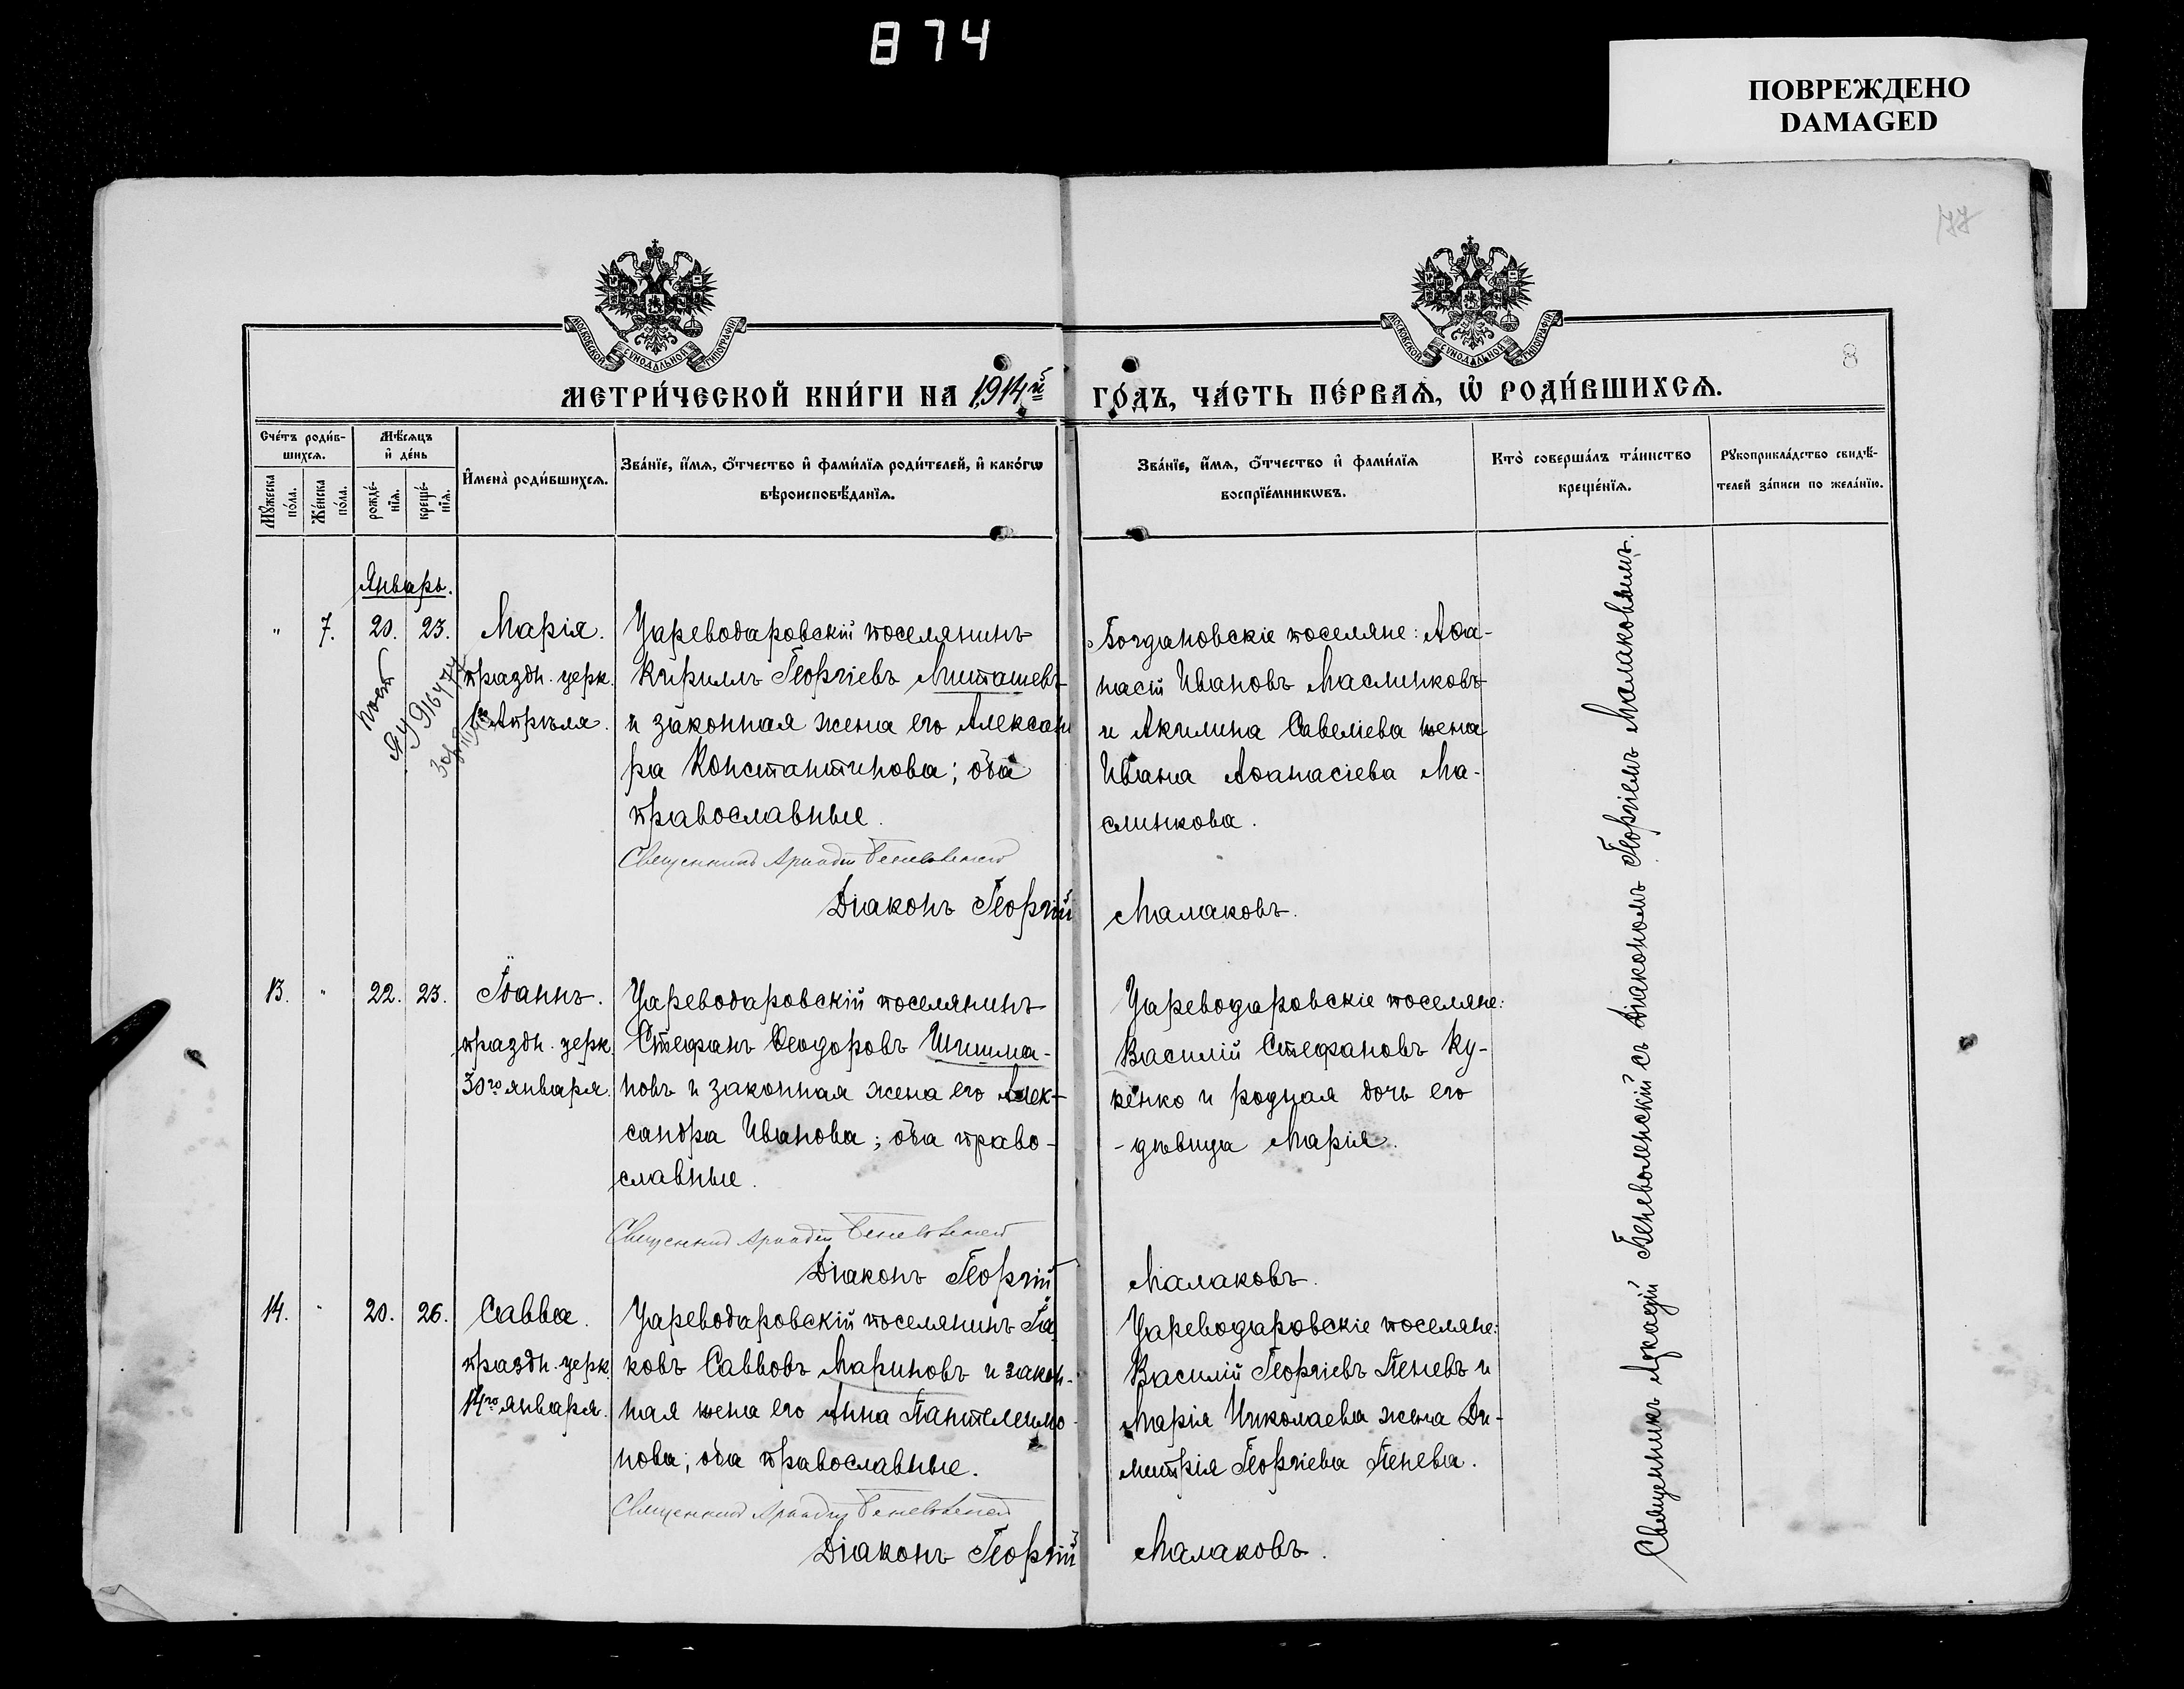 874
ПОВРЕЖДЕНО
DAMAGED
177
8
МОСКОВСКОЙ СУНОДАЛЬНОЙ ТИПОГРАФІИ
МОСКОВСКОЙ СУНОДАЛЬНОЙ ТИПОГРАФІИ
МЕТРИ́ЧЕСКОЙ КНИ́ГИ НА 1914й ГО́ДЪ, ЧА́СТЬ ПЕ́РВАѦ, Ѡ҆ РОДИ́ВШИХСѦ.
Сче́тъ роди́в-
шихсѧ.
Мѹжеска по́ла.
Же́нска по́ла.
Мѣ́сѧцъ
и҆ де́нь
рожде́-
нїѧ.
креще́-
нїѧ.
И҆мена̀ роди́вшихсѧ.
Зва́нїе, и҆́мѧ, ѻ҆́тчество и҆ фами́лїѧ роди́телей, и҆ како́гѡ
вѣроисповѣ́данїѧ.
Зва́нїе, и҆́мѧ, ѻ҆́тчество и҆ фами́лїѧ
воспрїе́мникѡвъ.
Кто̀ соверша́лъ та́инство
креще́нїѧ.
Рꙋкоприкла́дство свидѣ́-
телей за́писи по жела́нїю.
Январь.
" 7. 20. 23. Марія.
праздн. церк.
1го Апрѣля.
ЯУ 916474
Цареводаровскій поселянинъ
Кириллъ Георгіевъ Миташевъ
и законная жена его Алексан
ра Константинова; оба
православные.
Священникъ Аркадій Беневоленскій
Діаконъ Георгій Малаковъ.
Богдановскіе поселяне: Аѳа-
насій Ивановъ Маслинковъ
и Акилина Савеліева жена
Ивана Аѳанасіева Ма-
слинкова.
13. " 22. 23. Іоаннъ.
праздн. церк.
30го января.
Цареводаровскій поселянинъ
Стефанъ Ѳеодоровъ Шишма-
новъ и законная жена его Алек-
сандра Иванова; оба право-
славные.
Священникъ Аркадій Беневоленскій
Діаконъ Георгій Малаковъ.
Цареводаровскіе поселяне:
Василій Стефановъ Ку-
кенко и родная дочь его
- дѣвица Марія.
14. " 20. 26. Савва.
праздн. церк.
14го января.
Цареводаровскій поселянинъ Іа
ковъ Саввовъ Мариновъ и закон-
ная жена его Анна Пантелеимо-
нова; оба православные.
Священникъ Аркадій Беневоленскій
Діаконъ Георгій Малаковъ.
Цареводаровскіе поселяне:
Василій Георгіевъ Пеневъ и
Марія Николаева жена Ди-
митрія Георгіева Пенева.
Священникъ Аркадій Беневоленскій съ Діакономъ Георгіемъ Малаковымъ.